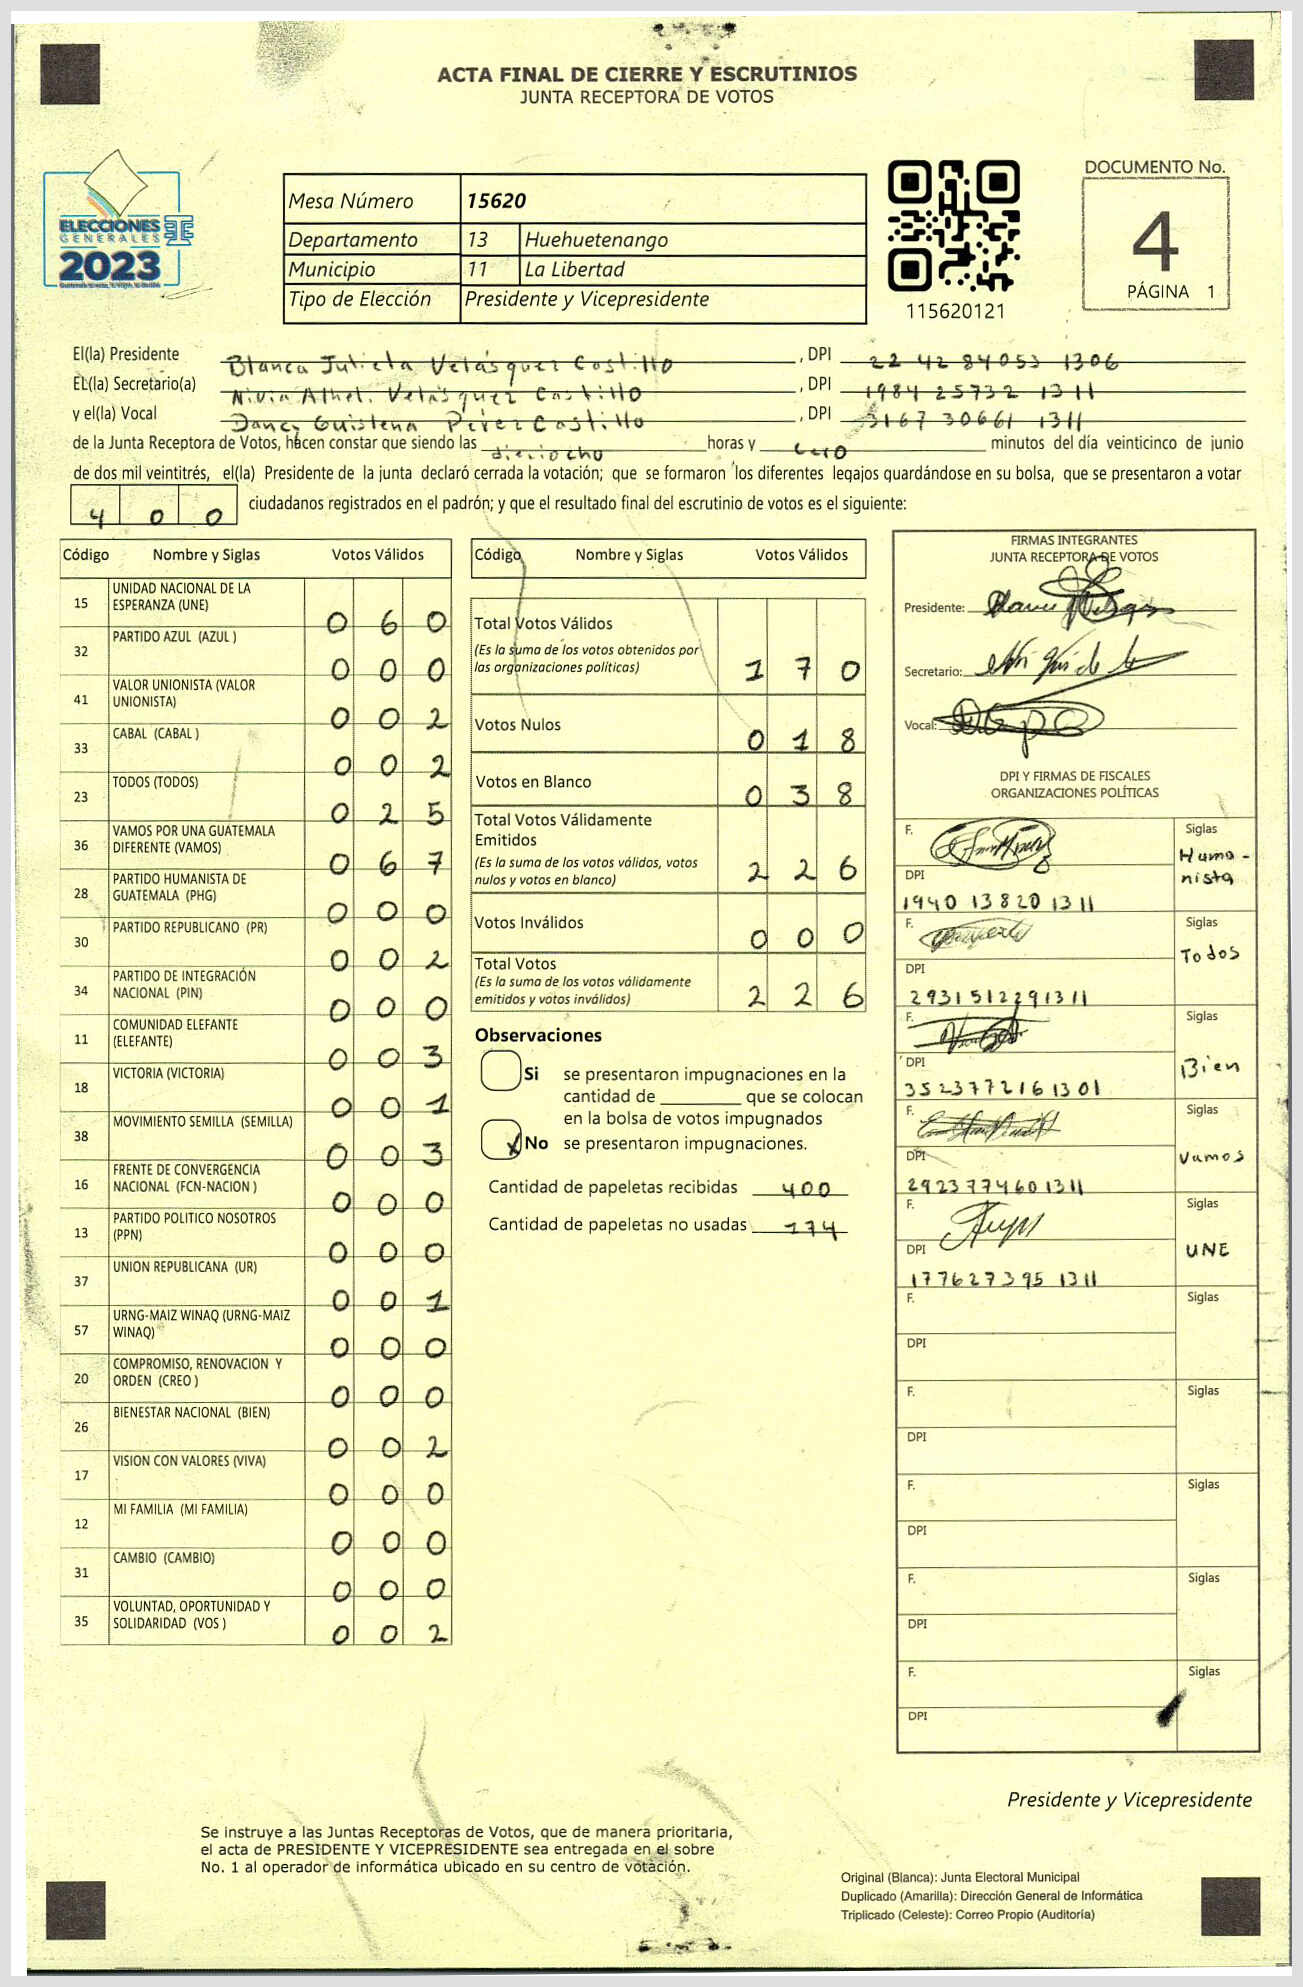 ACTA FINAL DE CIERRE Y ESCRUTINIOS
JUNTA RECEPTORA DE VOTOS
ELECCIONES
GENERALES
2023
Mesa Número 15620
Departamento 13 Huehuetenango
Municipio 11 La Libertad
Tipo de Elección Presidente y Vicepresidente
115620121
DOCUMENTO No.
4
PÁGINA 1
El(la) Presidente Blanca Julieta Velásquez Castillo, DPI 22 42 84053 1306
EL(la) Secretario(a) Nivia Velásquez Castillo, DPI 1984 25732 1311
y el(la) Vocal Pérez Castillo, DPI 3167 30661 1311
de la Junta Receptora de Votos, hacen constar que siendo las dieciocho horas y cero minutos del día veinticinco de junio
de dos mil veintitrés, el(la) Presidente de la junta declaró cerrada la votación; que se formaron los diferentes legajos quardándose en su bolsa, que se presentaron a votar
4 0 0 ciudadanos registrados en el padrón; y que el resultado final del escrutinio de votos es el siguiente:
Código Nombre y Siglas Votos Válidos
15 UNIDAD NACIONAL DE LA ESPERANZA (UNE) 0 6 0
32 PARTIDO AZUL (AZUL ) 0 0 0
41 VALOR UNIONISTA (VALOR UNIONISTA) 0 0 2
33 CABAL (CABAL ) 0 0 2
23 TODOS (TODOS) 0 2 5
36 VAMOS POR UNA GUATEMALA DIFERENTE (VAMOS) 0 6 7
28 PARTIDO HUMANISTA DE GUATEMALA (PHG) 0 0 0
30 PARTIDO REPUBLICANO (PR) 0 0 2
34 PARTIDO DE INTEGRACIÓN NACIONAL (PIN) 0 0 0
11 COMUNIDAD ELEFANTE (ELEFANTE) 0 0 3
18 VICTORIA (VICTORIA) 0 0 1
38 MOVIMIENTO SEMILLA (SEMILLA) 0 0 3
16 FRENTE DE CONVERGENCIA NACIONAL (FCN-NACION ) 0 0 0
13 PARTIDO POLITICO NOSOTROS (PPN) 0 0 0
37 UNION REPUBLICANA (UR) 0 0 1
57 URNG-MAIZ WINAQ (URNG-MAIZ WINAQ) 0 0 0
20 COMPROMISO, RENOVACION Y ORDEN (CREO ) 0 0 0
26 BIENESTAR NACIONAL (BIEN) 0 0 2
17 VISION CON VALORES (VIVA) 0 0 0
12 MI FAMILIA (MI FAMILIA) 0 0 0
31 CAMBIO (CAMBIO) 0 0 0
35 VOLUNTAD, OPORTUNIDAD Y SOLIDARIDAD (VOS ) 0 0 2
Código Nombre y Siglas Votos Válidos
Total Votos Válidos
(Es la suma de los votos obtenidos por
las organizaciones políticas) 1 7 0
Votos Nulos 0 1 8
Votos en Blanco 0 3 8
Total Votos Válidamente
Emitidos
(Es la suma de los votos válidos, votos
nulos y votos en blanco) 2 2 6
Votos Inválidos 0 0 0
Total Votos
(Es la suma de los votos válidamente
emitidos y votos inválidos) 2 2 6
Observaciones
Si se presentaron impugnaciones en la
cantidad de ________ que se colocan
en la bolsa de votos impugnados
X No se presentaron impugnaciones.
Cantidad de papeletas recibidas 400
Cantidad de papeletas no usadas 174
FIRMAS INTEGRANTES
JUNTA RECEPTORA DE VOTOS
Presidente:
Secretario:
Vocal:
DPI Y FIRMAS DE FISCALES
ORGANIZACIONES POLÍTICAS
F. Siglas
Huma-
nista
DPI
1940 13820 1311
F. Siglas
Todos
DPI
2931512291311
F. Siglas
Bien
DPI
3523772161301
F. Siglas
Vamos
DPI
2923774601311
F. Siglas
UNE
DPI
177627395 1311
F. Siglas
DPI
F. Siglas
DPI
F. Siglas
DPI
F. Siglas
DPI
F. Siglas
DPI
Presidente y Vicepresidente
Se instruye a las Juntas Receptoras de Votos, que de manera prioritaria,
el acta de PRESIDENTE Y VICEPRESIDENTE sea entregada en el sobre
No. 1 al operador de informática ubicado en su centro de votación.
Original (Blanca): Junta Electoral Municipal
Duplicado (Amarilla): Dirección General de Informática
Triplicado (Celeste): Correo Propio (Auditoría)